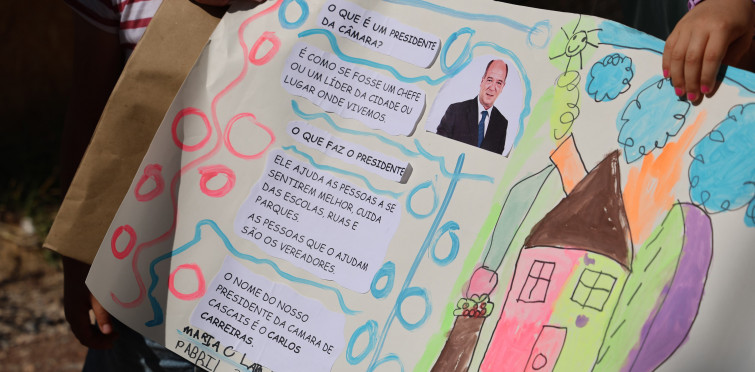 O QUE É UM PRESIDENTE
DA CÂMARA?
É COMO SE FOSSE UM CHEFE
OU UM LÍDER DA CIDADE OU
LUGAR ONDE VIVEMOS.
O QUE FAZ O PRESIDENTE
ELE AJUDA AS PESSOAS A SE
SENTIREM MELHOR, CUIDA
DAS ESCOLAS, RUAS E
PARQUES.
AS PESSOAS QUE O AJUDAM
SÃO OS VEREADORES.
O NOME DO NOSSO
PRESIDENTE DA CAMARA DE
CASCAIS E O CARLOS
CARREIRAS.
MARIA